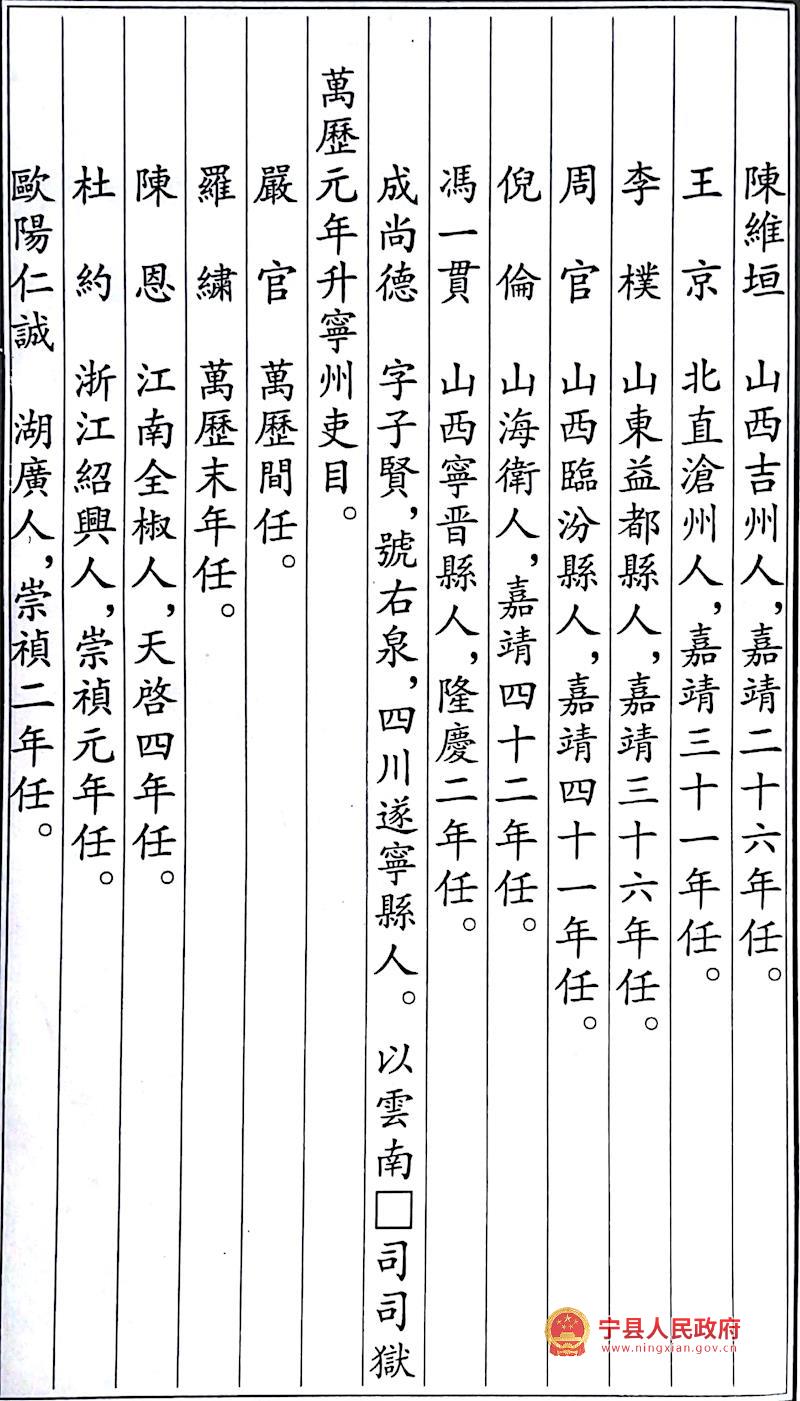 陳維垣　山西吉州人，嘉靖二十六年任。
王　京　北直滄州人，嘉靖三十一年任。
李　樸　山東益都縣人，嘉靖三十六年任。
周　官　山西臨汾縣人，嘉靖四十一年任。
倪　倫　山海衛人，嘉靖四十二年任。
馮一貫　山西寧晋縣人，隆慶二年任。
成尚德　字子賢，號右泉，四川遂寧縣人。以雲南□司司獄
萬歷元年升寧州吏目。
嚴　官　萬歷間任。
羅　繡　萬歷末年任。
陳　恩　江南全椒人，天啓四年任。
杜　約　浙江紹興人，崇禎元年任。
歐陽仁誠　湖廣人，崇禎二年任。
宁县人民政府
www.ningxian.gov.cn